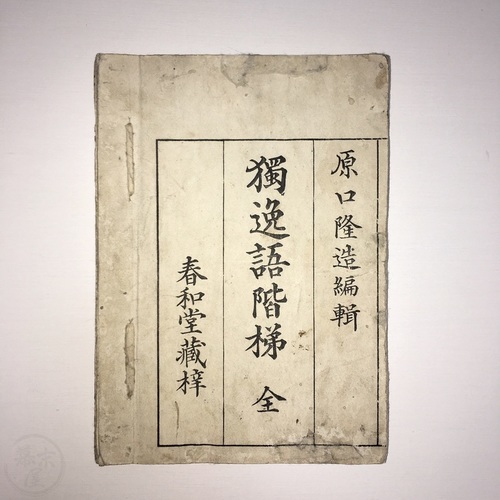 原口隆造編輯
獨逸語階梯 全
春和堂藏梓